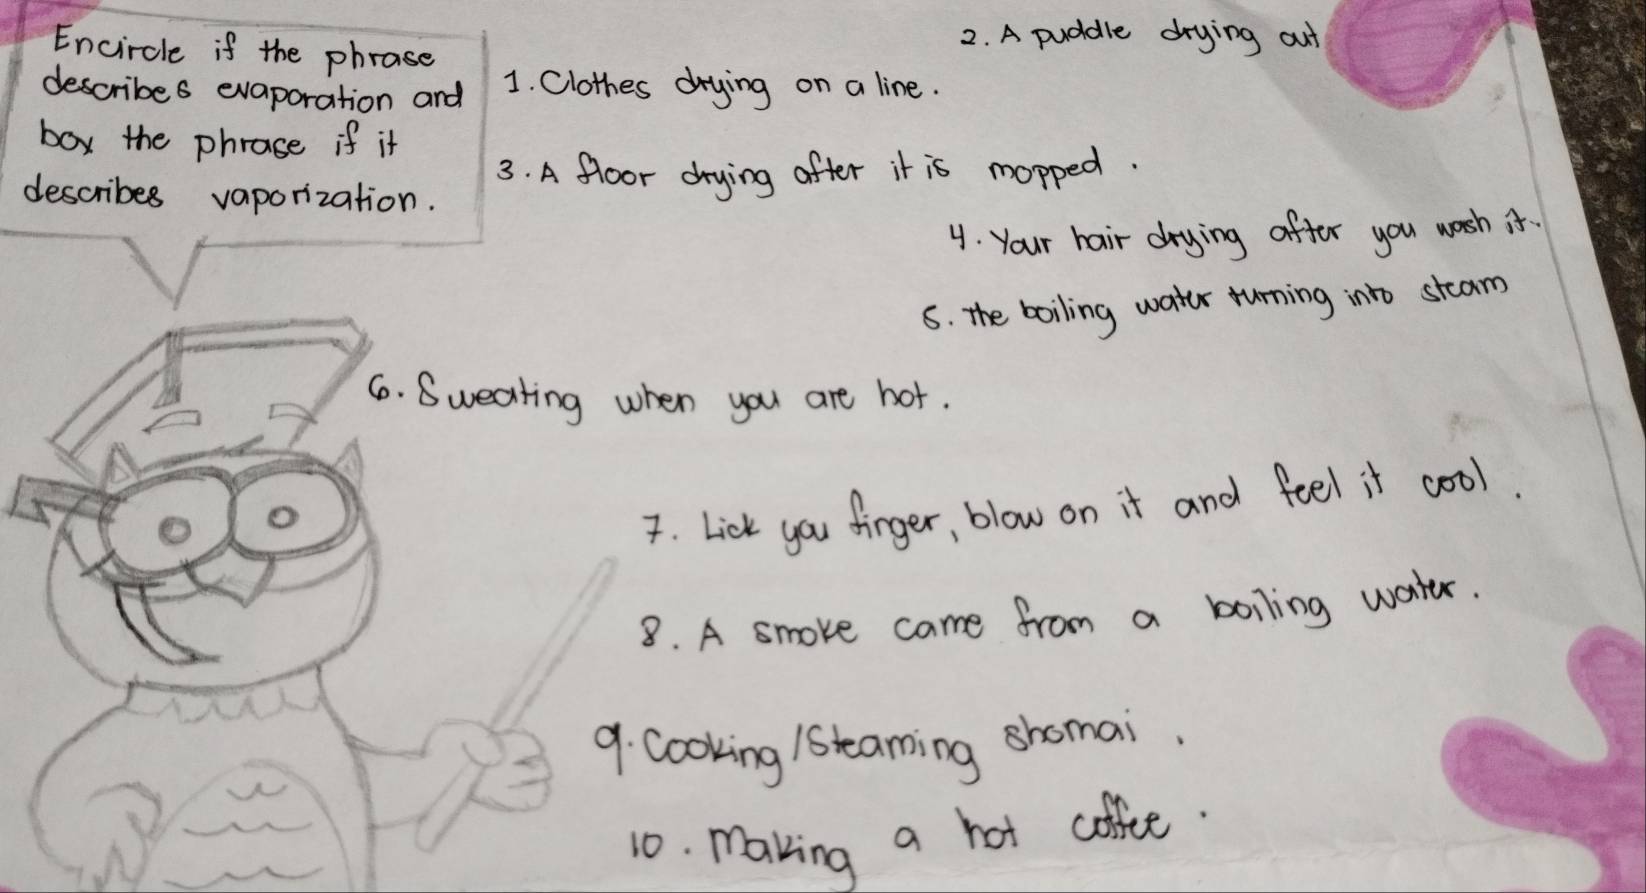 Encircle if the phrase
describes evaporation and
box the phrase if it
describes vaporization.
1. Clothes drying on a line.
2. A puddle drying out
3. A floor drying after it is mopped.
4. Your hair drying after you wash it.
5. The boiling water turning into steam
6. Sweating when you are hot.
7. Lick you finger, blow on it and feel it cool.
8. A smoke came from a boiling water.
9. Cooking/Steaming shomai.
10. Making a hot coffee.